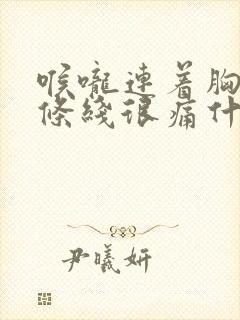 喉嚨連着胸
條綫很痛什
尹曦妍